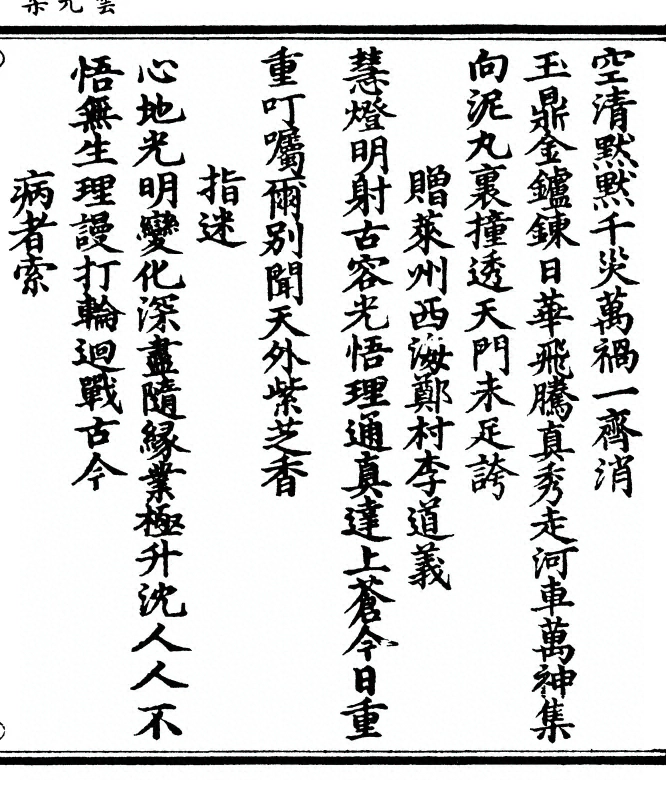 空清默默千災萬禍一齊消
玉鼎金鑪鍊日華飛騰真秀走河車萬神集
向泥丸裏撞透天門未足誇
贈萊州西海鄭村李道義
慧燈明射古容光悟理通真達上蒼今日重
重叮囑爾別聞天外紫芝香
指迷
心地光明變化深盡隨緣業極升沈人人不
悟無生理謾打輪迴戰古今
病者索